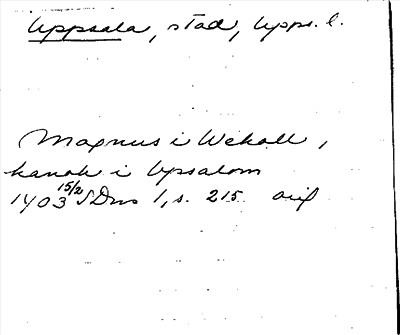 Uppsala, stad, Upps. l.
Magnus i Wekall,
kanok i Upsalom
1403 15/2 SDns 1, s. 215 orig